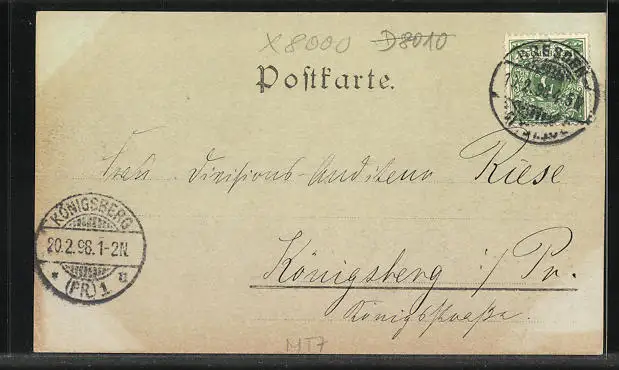 X8000 D8010
Postkarte.
DRESDEN
Frau Divisions-Auditeur Riese
KÖNIGSBERG
20.2.98.1-2N.
* (PR.) 1 u
Königsberg i/Pr.
Königsstraße.
MT7